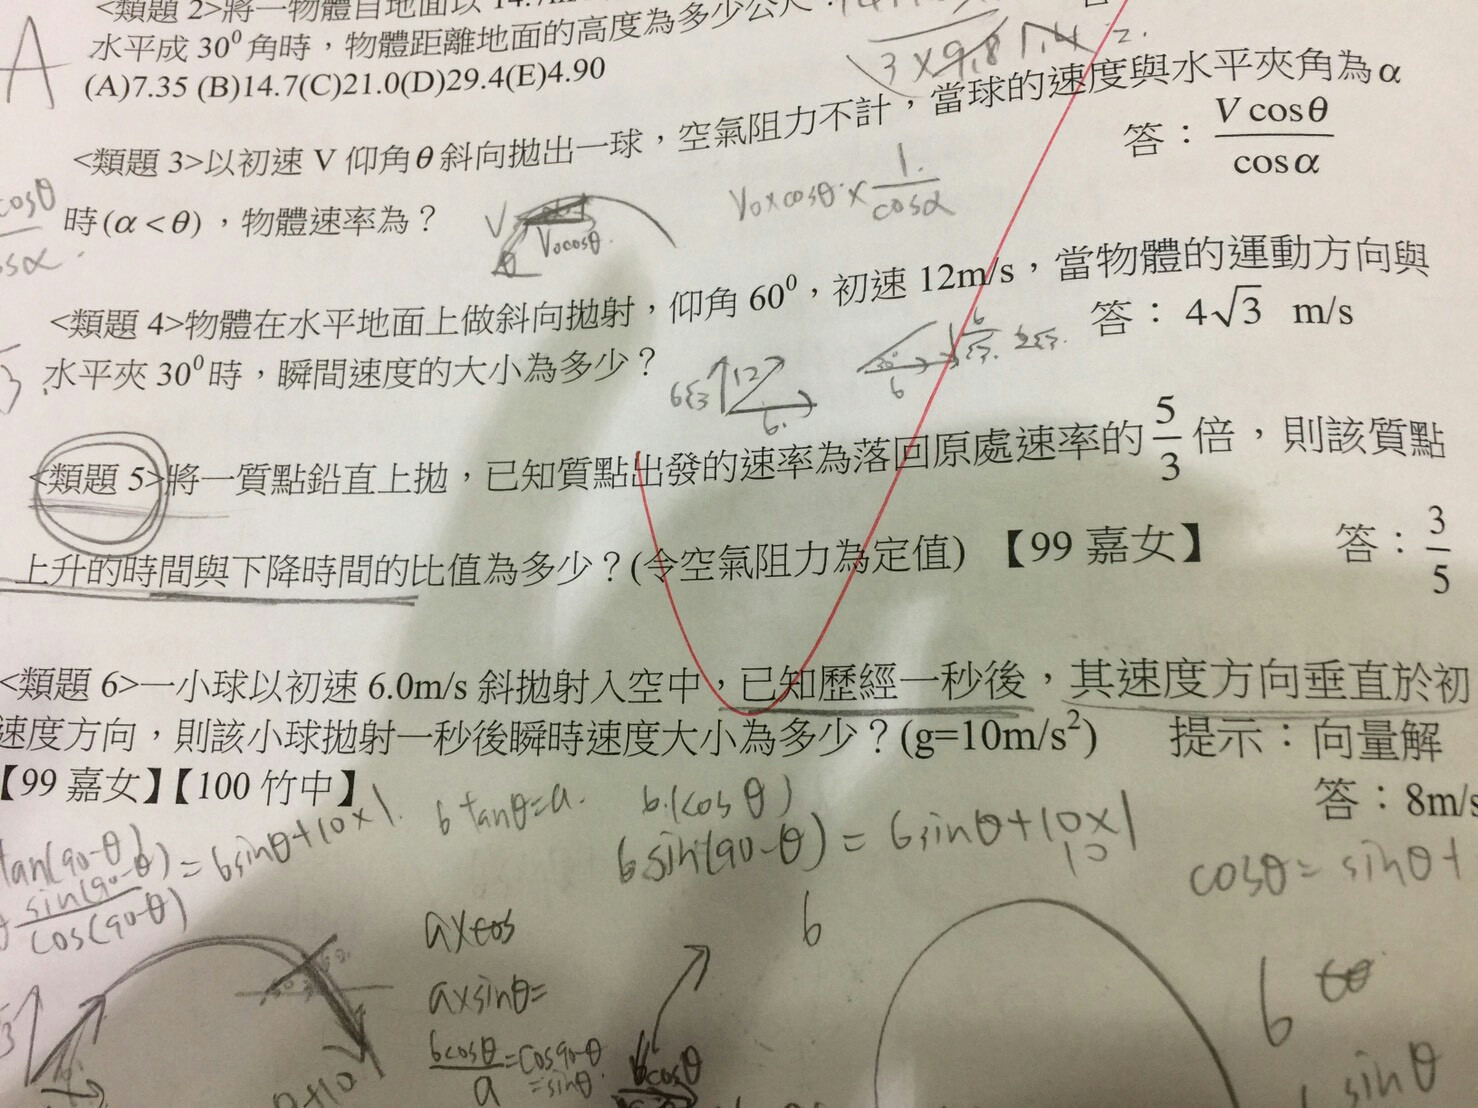 <類題 2>將一物體自地面以 14.7m
水平成 30⁰ 角時，物體距離地面的高度為多少公尺
(A)7.35 (B)14.7(C)21.0(D)29.4(E)4.90
A
3×9.8
<類題 3>以初速 V 仰角θ斜向拋出一球，空氣阻力不計，當球的速度與水平夾角為α
時(α<θ)，物體速率為？
答： Vcosθ/cosα
V₀×cosθ×1/cosα
V
V₀cosθ
<類題 4>物體在水平地面上做斜向拋射，仰角 60⁰，初速 12m/s，當物體的運動方向與
水平夾 30⁰時，瞬間速度的大小為多少？
答： 4√3 m/s
6√3 12 6
6
<類題 5>將一質點鉛直上拋，已知質點出發的速率為落回原處速率的 5/3 倍，則該質點
上升的時間與下降時間的比值為多少？(令空氣阻力為定值) 【99 嘉女】
答： 3/5
<類題 6>一小球以初速 6.0m/s 斜拋射入空中，已知歷經一秒後，其速度方向垂直於初
速度方向，則該小球拋射一秒後瞬時速度大小為多少？(g=10m/s²) 提示：向量解
【99 嘉女】【100 竹中】
答：8m/s
tan(90-θ) = 6sinθ+10×1
sin(90-θ)/cos(90-θ)
6tanθ=a.
6.(cosθ)
6sin(90-θ) = 6sinθ+10×1
10
cosθ= sinθ+
a×cos
a×sinθ=
6cosθ/a =cos90-θ
=sinθ
6
6cosθ
6
sinθ